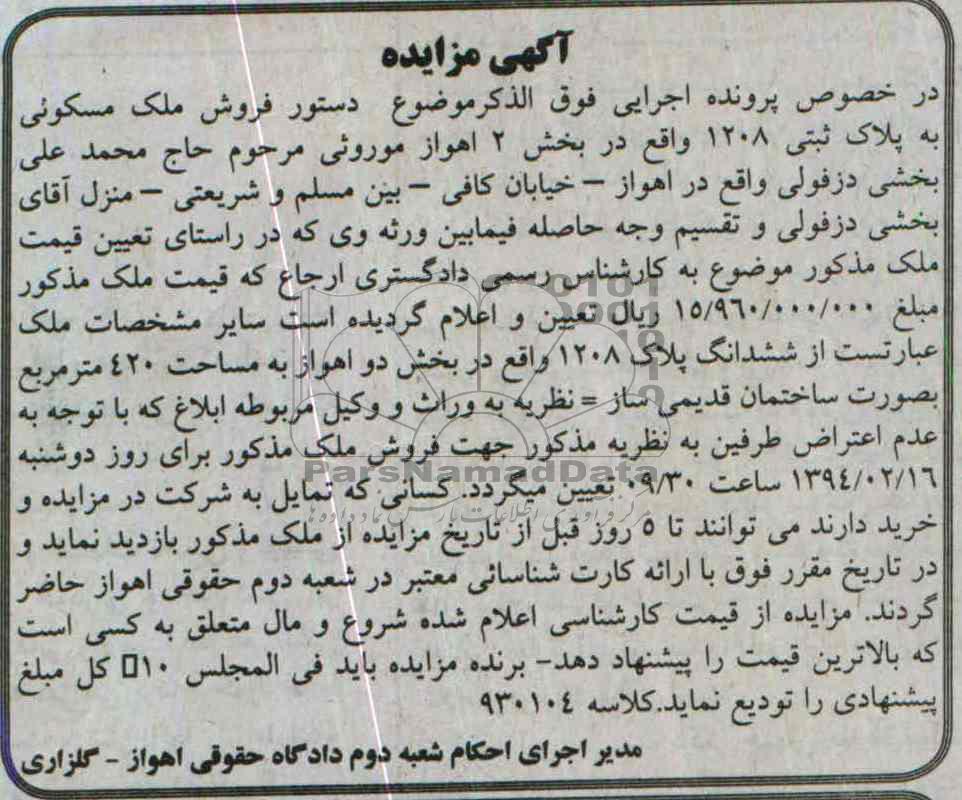 آگهی مزایده
در خصوص پرونده اجرایی فوق الذکرموضوع دستور فروش ملک مسکونی
به پلاک ثبتی ۱۲۰۸ واقع در بخش ۲ اهواز موروثی مرحوم حاج محمد علی
بخشی دزفولی واقع در اهواز – خیابان کافی – بین مسلم و شریعتی – منزل آقای
بخشی دزفولی و تقسیم وجه حاصله فیمابین ورثه وی که در راستای تعیین قیمت
ملک مذکور موضوع به کارشناس رسمی دادگستری ارجاع که قیمت ملک مذکور
مبلغ ۱۵/۹۶۰/۰۰۰/۰۰۰ ریال تعیین و اعلام گردیده است سایر مشخصات ملک
عبارتست از ششدانگ پلاک ۱۲۰۸ واقع در بخش دو اهواز به مساحت ۴۲۰ مترمربع
بصورت ساختمان قدیمی ساز = نظریه به وراث و وکیل مربوطه ابلاغ که با توجه به
عدم اعتراض طرفین به نظریه مذکور جهت فروش ملک مذکور برای روز دوشنبه
۱۳۹٤/۰۲/۱٦ ساعت ۰۹/۳۰ تعیین میگردد. کسانی که تمایل به شرکت در مزایده و
خرید دارند می توانند تا ۵ روز قبل از تاریخ مزایده از ملک مذکور بازدید نماید و
در تاریخ مقرر فوق با ارائه کارت شناسائی معتبر در شعبه دوم حقوقی اهواز حاضر
گردند. مزایده از قیمت کارشناسی اعلام شده شروع و مال متعلق به کسی است
که بالاترین قیمت را پیشنهاد دهد- برنده مزایده باید فی المجلس ۱۰□ کل مبلغ
پیشنهادی را تودیع نماید.کلاسه ۹۳۰۱۰٤
مدیر اجرای احکام شعبه دوم دادگاه حقوقی اهواز - گلزاری
ParsNamadData